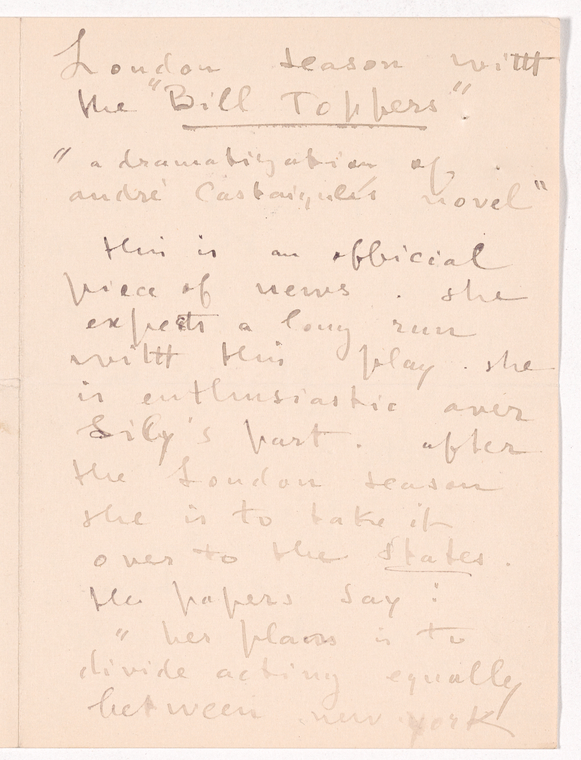 London season with
the "Bill Toppers".
" a dramatization of
andré Castaigulés novel"
this is an official
piece of news . she
expects a long run
with this play . she
is enthusiastic over
Lily's part . after
the London season
she is to take it
over to the States .
the papers say :
" her plans is to
divide acting equally
between new york